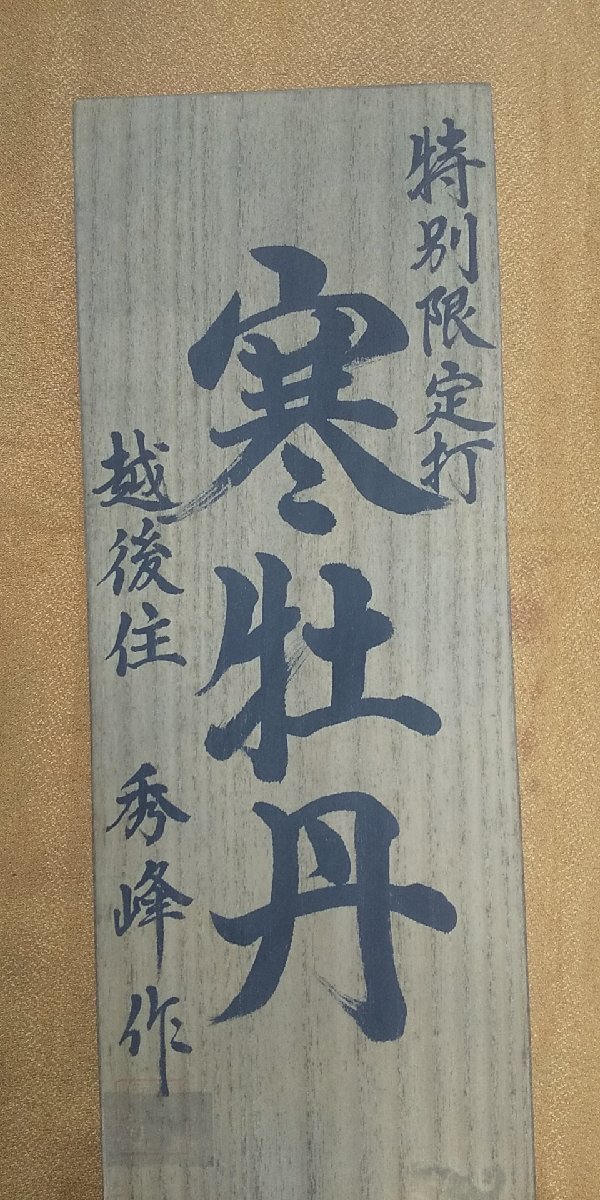 特別限定打
寒牡丹
越後住 秀峰作